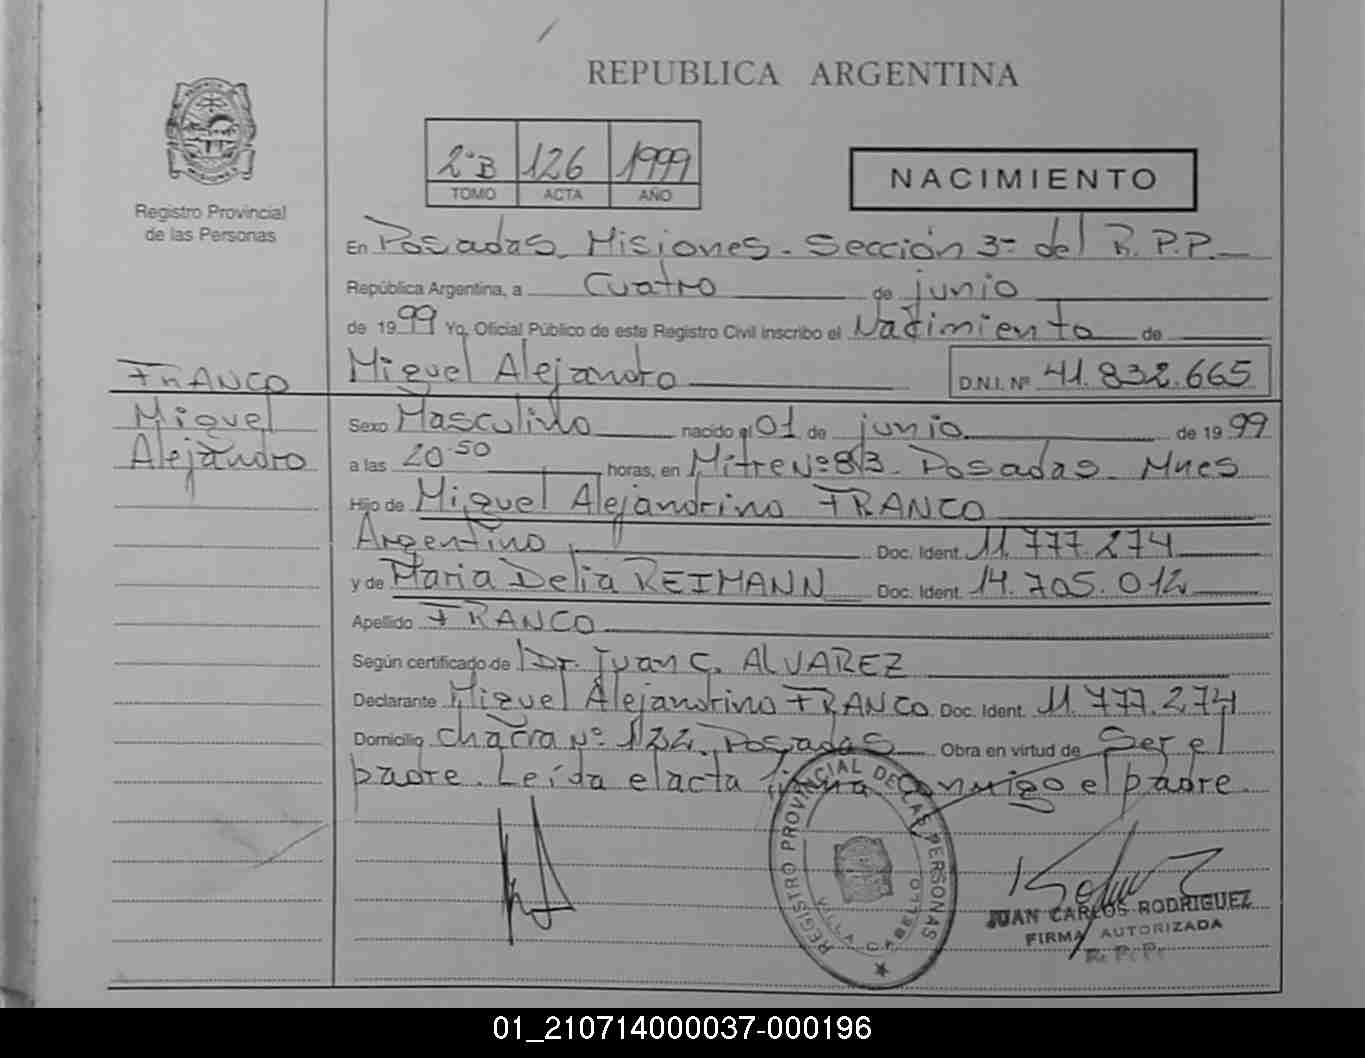 REPUBLICA ARGENTINA
2°B 126 1999
TOMO ACTA AÑO
NACIMIENTO
Registro Provincial
de las Personas
En Posadas Misiones - Sección 3ª del R.P.P.
República Argentina, a Cuatro de junio
de 1999 Yo, Oficial Público de este Registro Civil inscribo el Nacimiento de
Miguel Alejandro D.N.I. Nº 41.832.665
FRANCO
Miguel
Alejandro
Sexo Masculino nacido el 01 de junio de 1999
a las 20-50 horas, en Mitre Nº 813 - Posadas - Mnes
Hijo de Miguel Alejandrino FRANCO
Argentino Doc. Ident. 11.777.274
y de Maria Delia REIMANN Doc. Ident. 14.705.012
Apellido FRANCO
Según certificado de Dr. Juan C. ALVAREZ
Declarante Miguel Alejandrino FRANCO Doc. Ident. 11.777.274
Domicilio Chacra Nº 122. Posadas Obra en virtud de Ser el
padre. Leída el acta firma conmigo el padre.
REGISTRO PROVINCIAL DE LAS PERSONAS
VILLA CABELLO
JUAN CARLOS RODRIGUEZ
FIRMA AUTORIZADA
R.P.P.
01_210714000037-000196